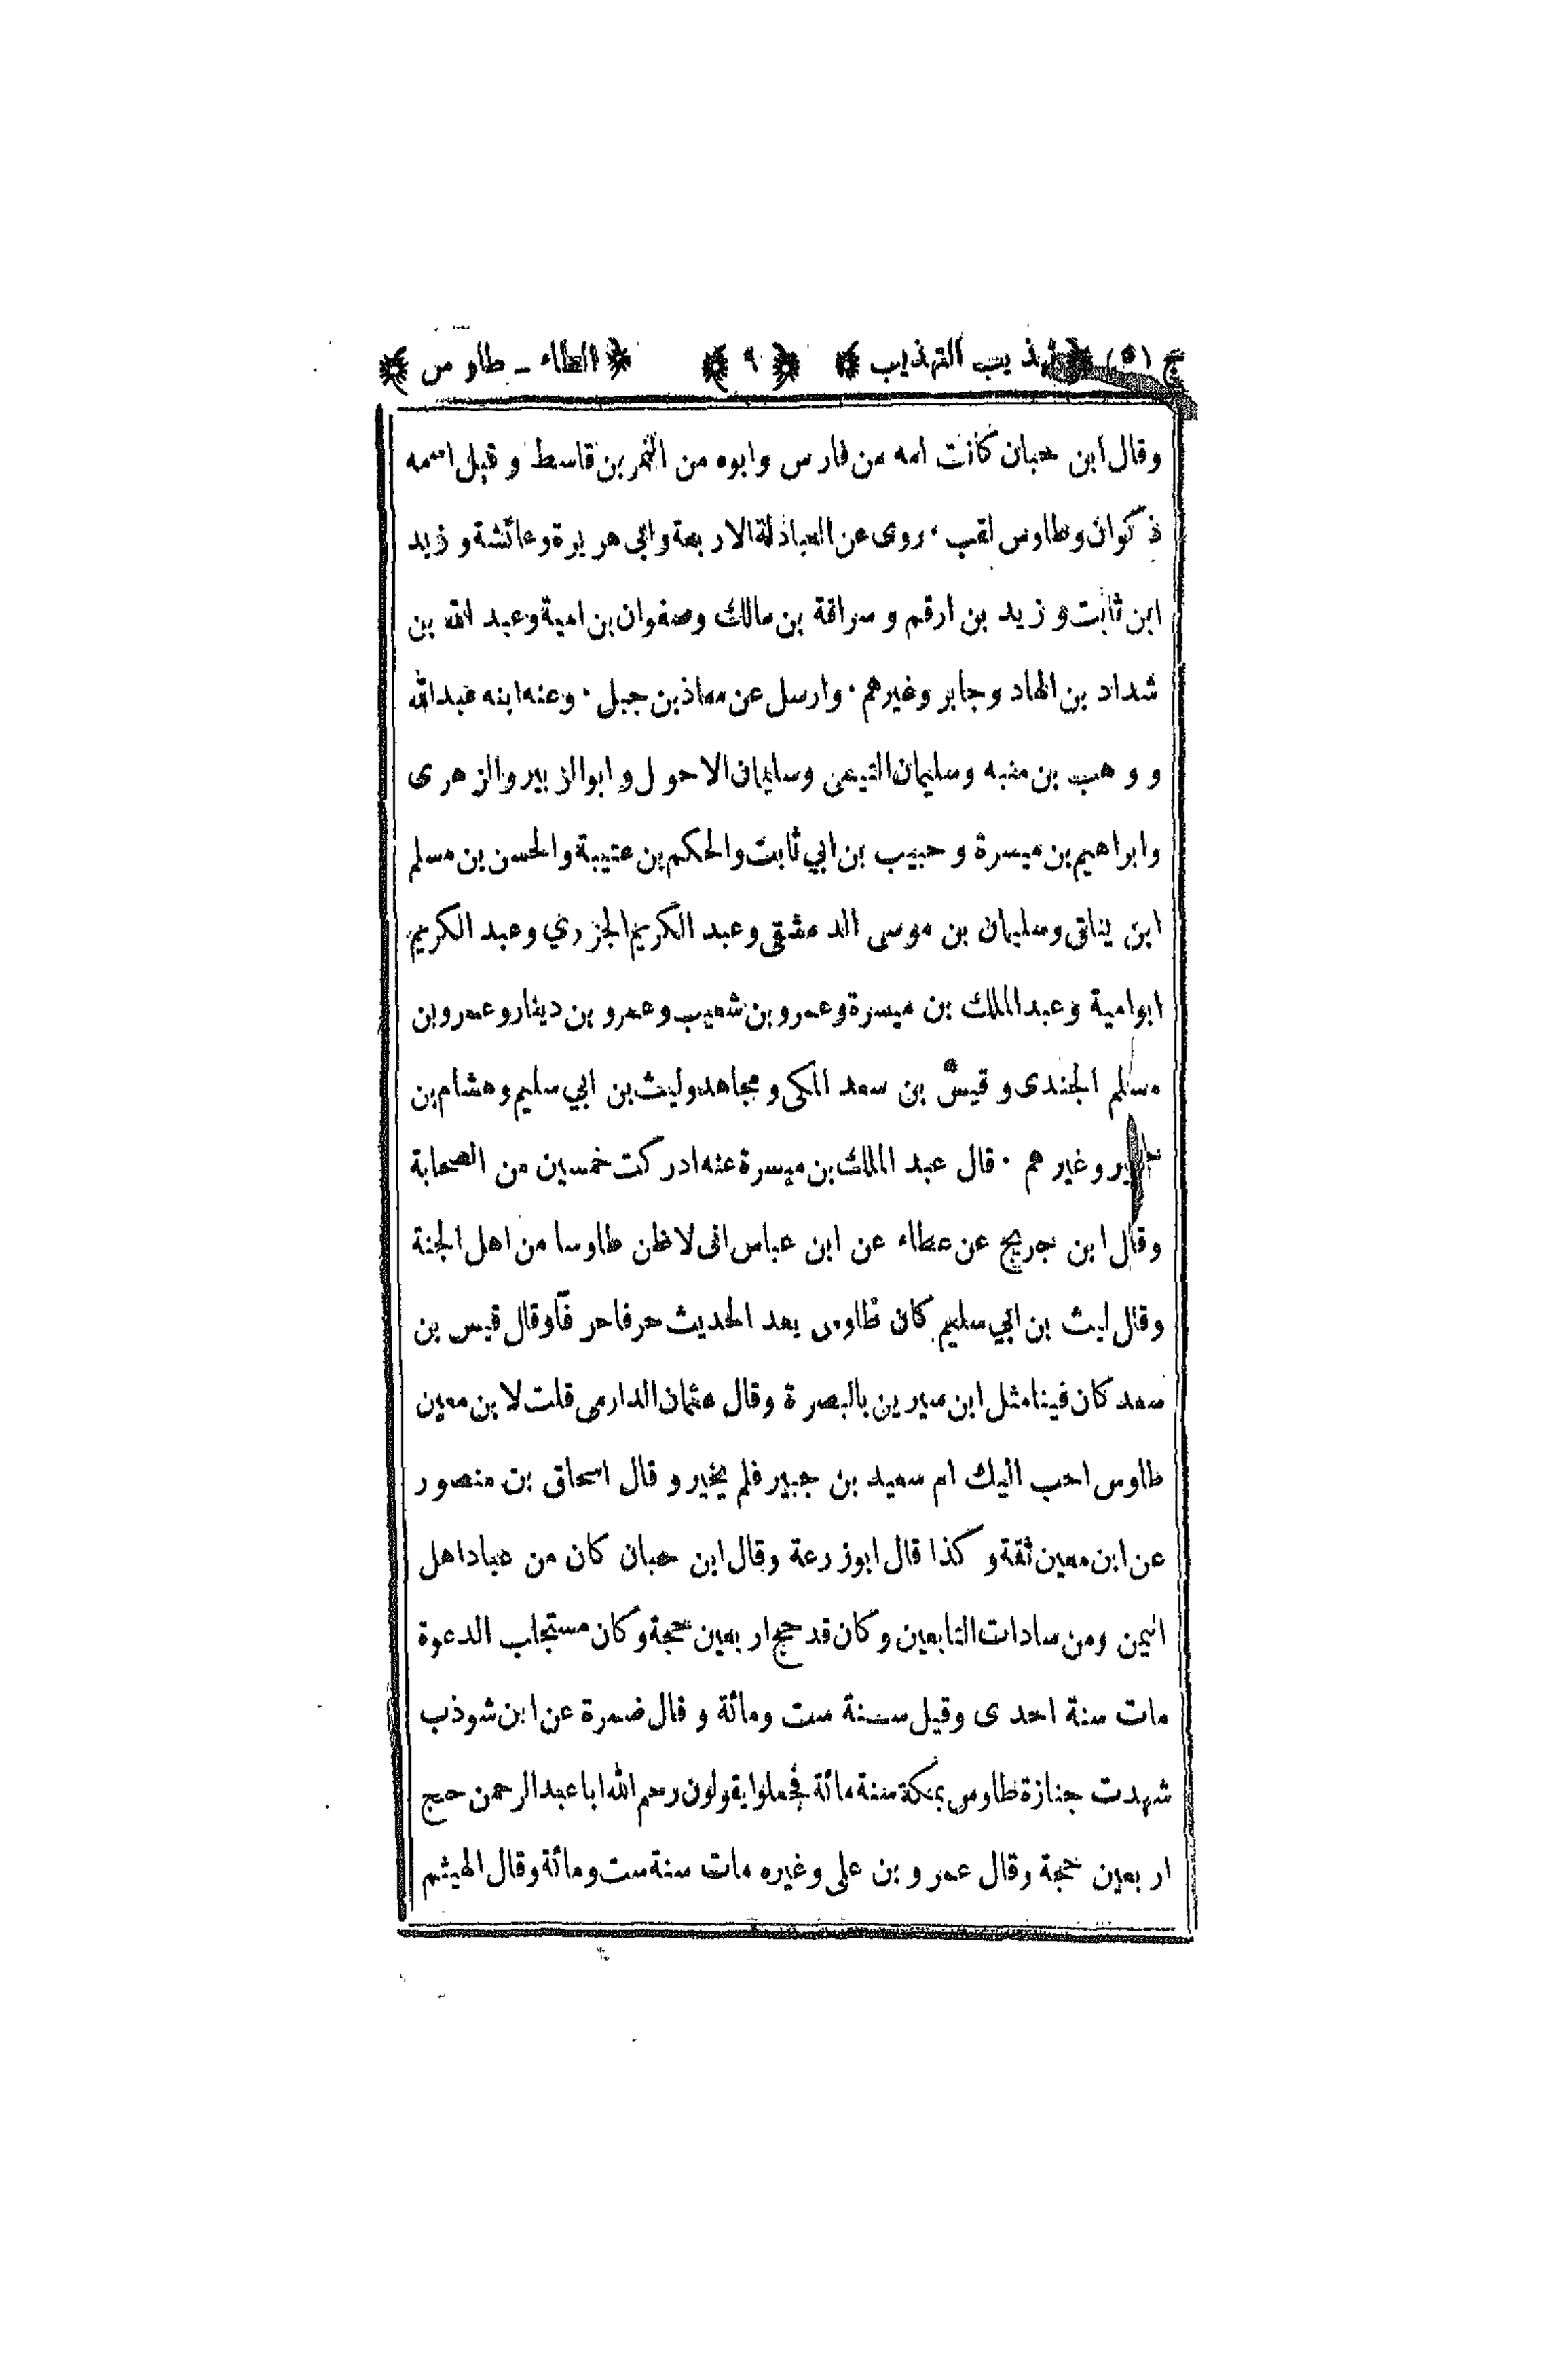 ج (٥) ﴿ تهذيب التهذيب ﴾ ﴿ ٩ ﴾ ﴿ الطاء ـ طاوس ﴾
وقال ابن حبان كانت امه من فارس وابوه من النمر بن قاسط وقيل اسمه
ذكوان وطاوس لقب · روى عن العبادلة الاربعة وابي هريرة وعائشة وزيد
ابن ثابت وزيد بن ارقم وسراقة بن مالك وصفوان بن امية وعبد الله بن
شداد بن الهاد وجابر وغيرهم · وارسل عن معاذ بن جبل · وعنه ابنه عبد الله
ووهب بن منبه وسليمان التيمى وسليمان الاحول وابو الزبير والزهرى
وابراهيم بن ميسرة وحبيب بن ابي ثابت والحكم بن عتيبة والحسن بن مسلم
ابن يناق وسليمان بن موسى الدمشقى وعبد الكريم الجزري وعبد الكريم
ابو امية وعبد الملك بن ميسرة وعمرو بن شعيب وعمرو بن دينار وعمرو بن
مسلم الجندى وقيس بن سعد المكى ومجاهد وليث بن ابي سليم وهشام بن
حجير وغيرهم · قال عبد الملك بن ميسرة عنه ادركت خمسين من الصحابة
وقال ابن جريج عن عطاء عن ابن عباس انى لاظن طاوسا من اهل الجنة
وقال ليث بن ابي سليم كان طاوس يعد الحديث حرفا حرفا وقال قيس بن
سعد كان فينا مثل ابن سيرين بالبصرة وقال عثمان الدارمى قلت لابن معين
طاوس احب اليك ام سعيد بن جبير فلم يخير وقال اسحاق بن منصور
عن ابن معين ثقة وكذا قال ابو زرعة وقال ابن حبان كان من عباد اهل
اليمن ومن سادات التابعين وكان قد حج اربعين حجة وكان مستجاب الدعوة
مات سنة احدى وقيل سنة ست ومائة وقال ضمرة عن ابن شوذب
شهدت جنازة طاوس بمكة سنة مائة فجعلوا يقولون رحم الله ابا عبد الرحمن حج
اربعين حجة وقال عمرو بن على وغيره مات سنة ست ومائة وقال الهيثم